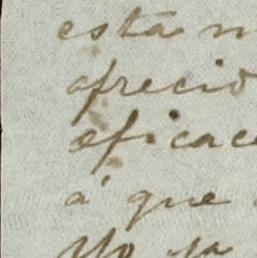 está n
ofreció
eficace
á que
Yo ya